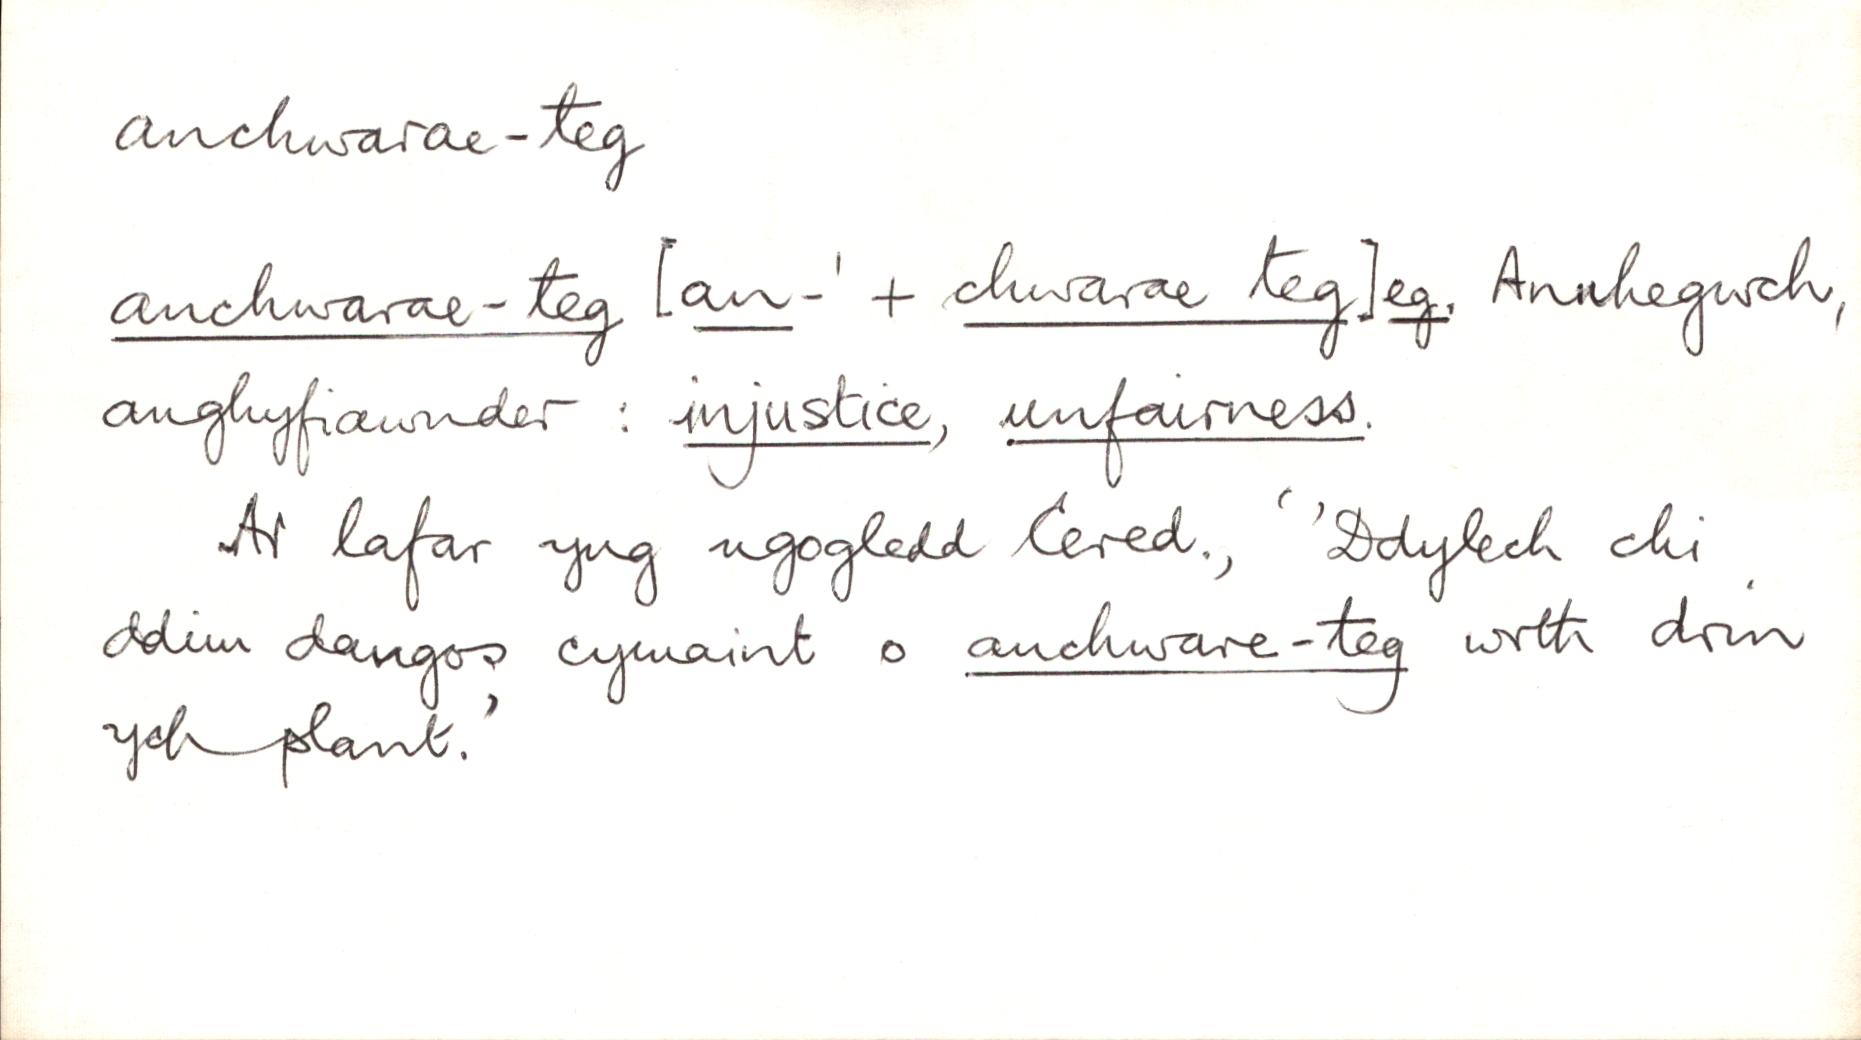 anchwarae-teg
anchwarae-teg [an-¹ + chwarae teg] eg. Annhegwch,
anghyfiawnder : injustice, unfairness.
Ar lafar yng ngogledd Cered., ‘’Ddylech chi
ddim dangos cymaint o anchware-teg wrth drin
ych plant.’